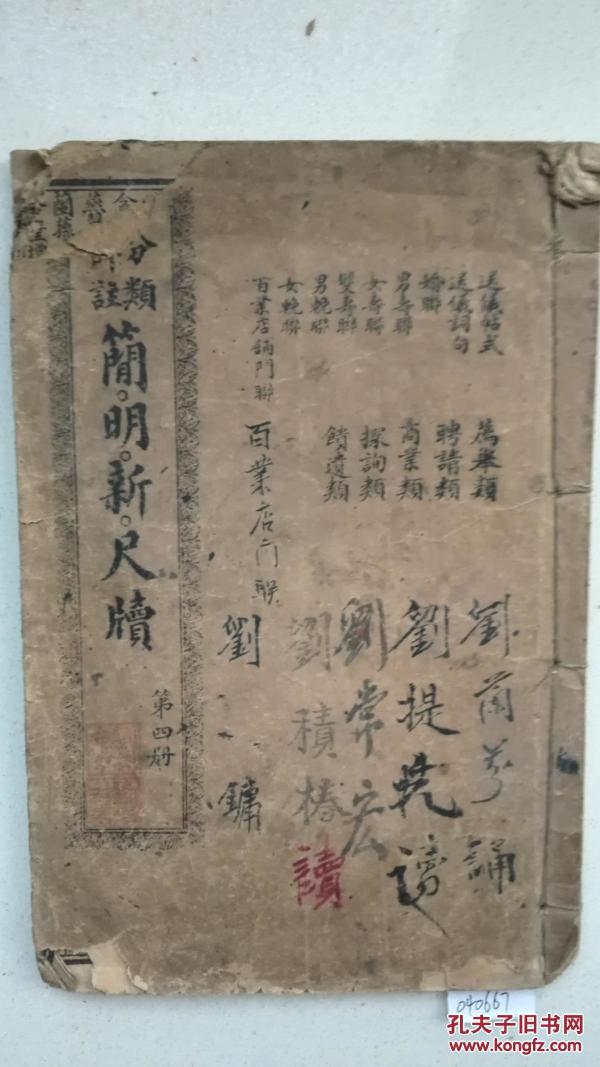 送儀帖式
送儀詞句
婚聯
男壽聯
女壽聯
雙壽聯
男輓聯
女輓聯
百業店鋪門聯
薦舉類
聘請類
商業類
探詢類
饋遺類
百業店门联
劉蘭芳誦
劉提
劉常宏
劉積椿讀
劉鏞
分類
註
簡明新尺牘
第四册
040667
孔夫子旧书网
www.kongfz.com